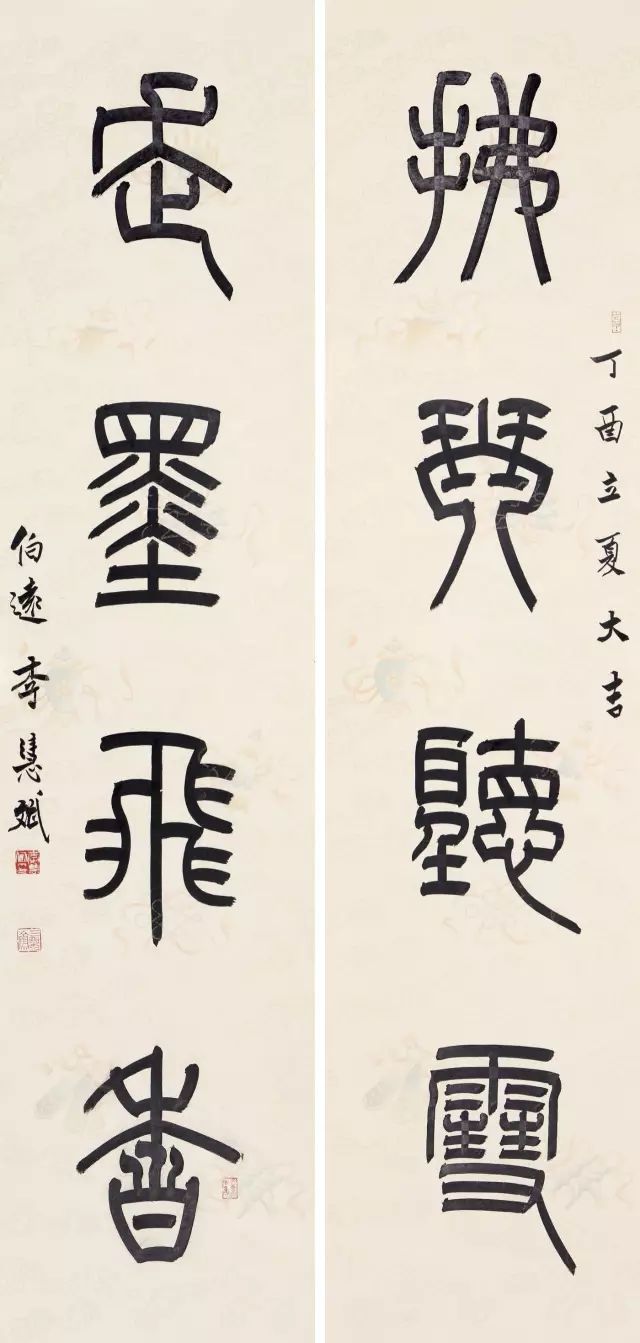 拂琹聽雪
丁酉立夏大吉
走墨飛香
伯遠李慧斌